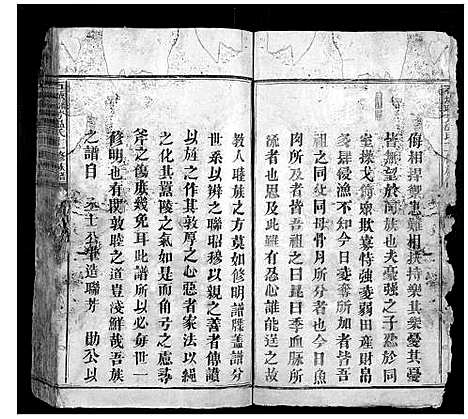 侮相捍衛患難相扶持樂其樂憂其憂
皆無望於閭族也夫豪強之子忿於同
室操戈飾黨欺寡恃強凌弱田產財帛
多肆侵漁不知今日凌奪所加者皆吾
祖之同氣同母骨月所分者也今日魚
肉所及者皆吾祖之一氣一季血脉所
流者也思及此忍心誰能逞之故
教人睦族之方莫如修明譜牒蓋譜分
世系以辨之聯昭穆以親之善者傳讀
以旌之所以作其敦厚之心惡者家法繩
之化其囂陵之氣如是而角弓之慮尋
斧之傷庶幾免耳此譜所以必每世一
修明也有關敦睦之道豈淺鮮哉吾族
之譜自 丞主公肇造聯芳 勛公以